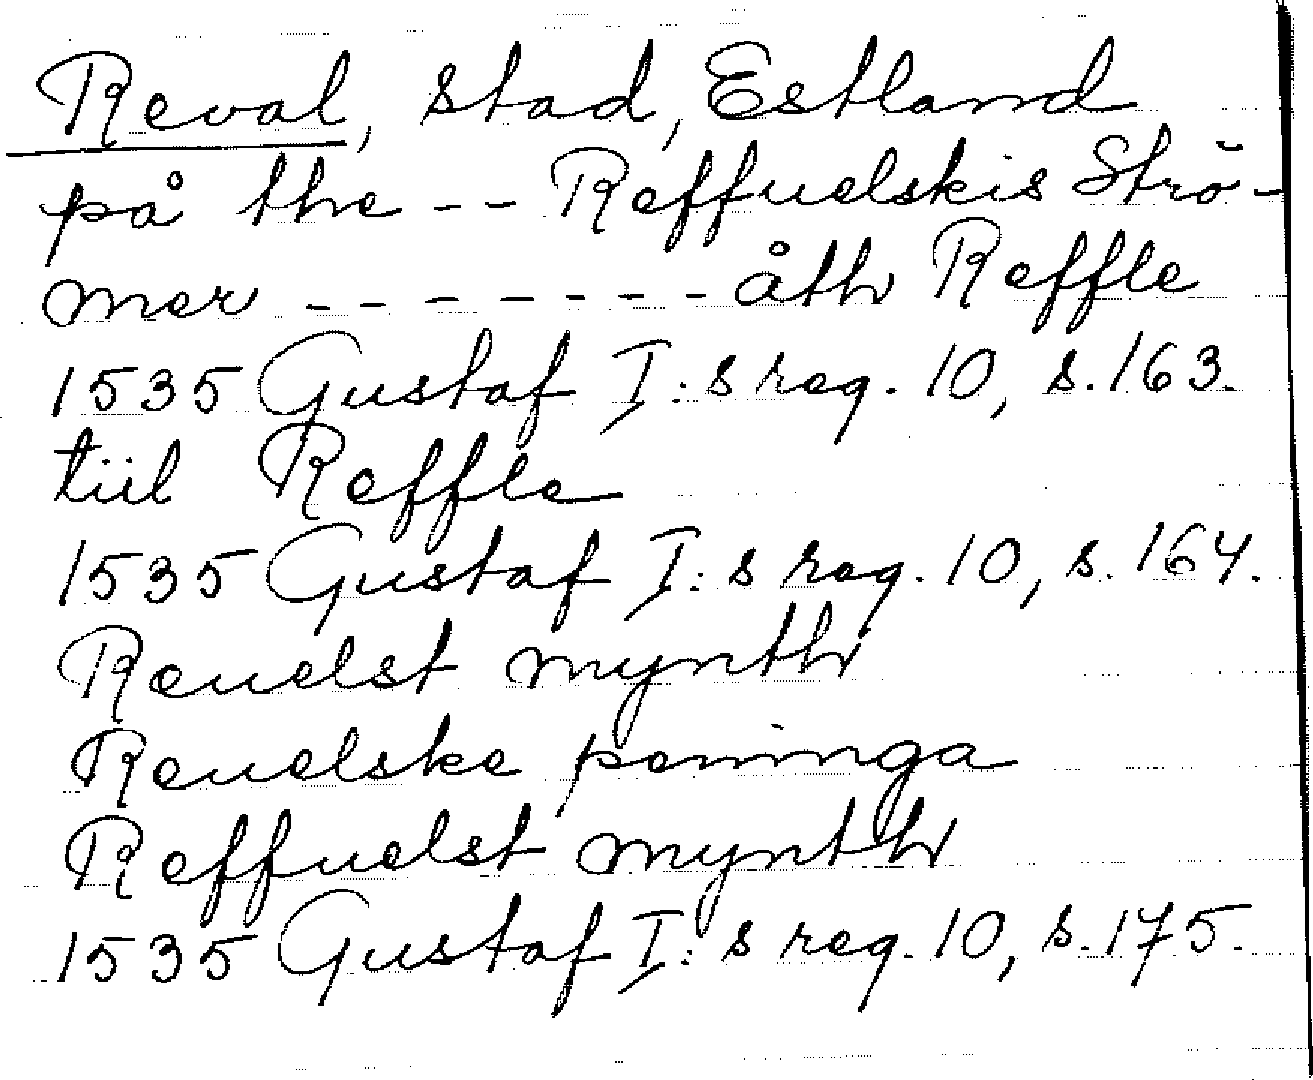 Reval, stad, Estland
på the -- Reffuelskis Strö-
mer ------- åth Reffle
1535 Gustaf I:s reg. 10, s. 163.
tiil Reffle
1535 Gustaf I:s reg. 10, s. 164.
Reuelst mynth
Reuelske peninga
Reffuelst mynth
1535 Gustaf I:s reg. 10, s. 175.